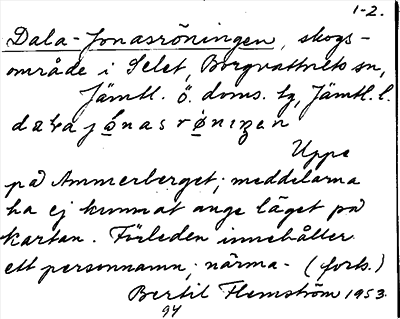 1-2.
Dala-Jonasröningen, skogs-
område i Selet, Borgvattnets sn,
Jämtl. ö. doms. tg, Jämtl. l.
Uppe
på Ammerberget; meddelarna
ha ej kunnat ange läget på
kartan. Förleden innehåller
ett personnamn; närma- (forts.)
Bertil Flemström 1953.
94